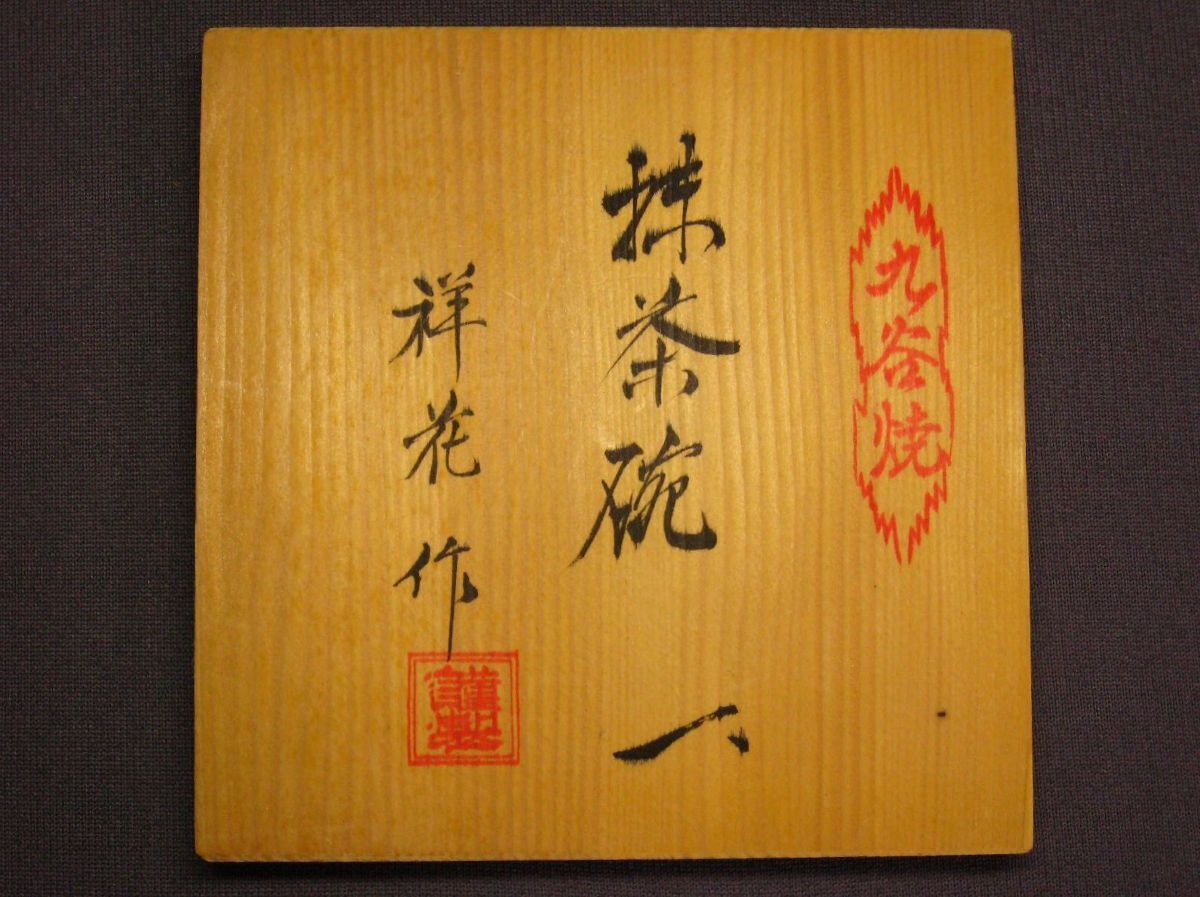 九谷焼
抹茶碗 一
祥花作
謹製